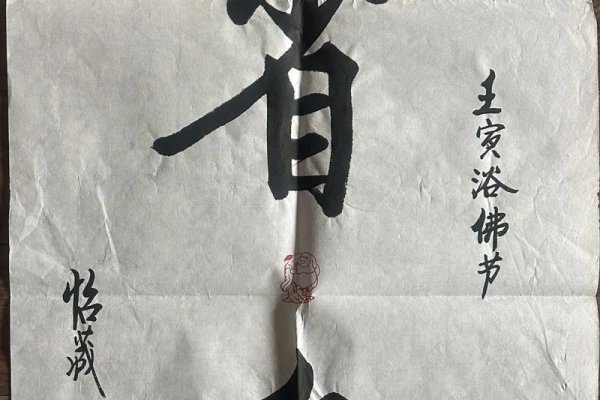 壬寅浴佛节
省
怡藏